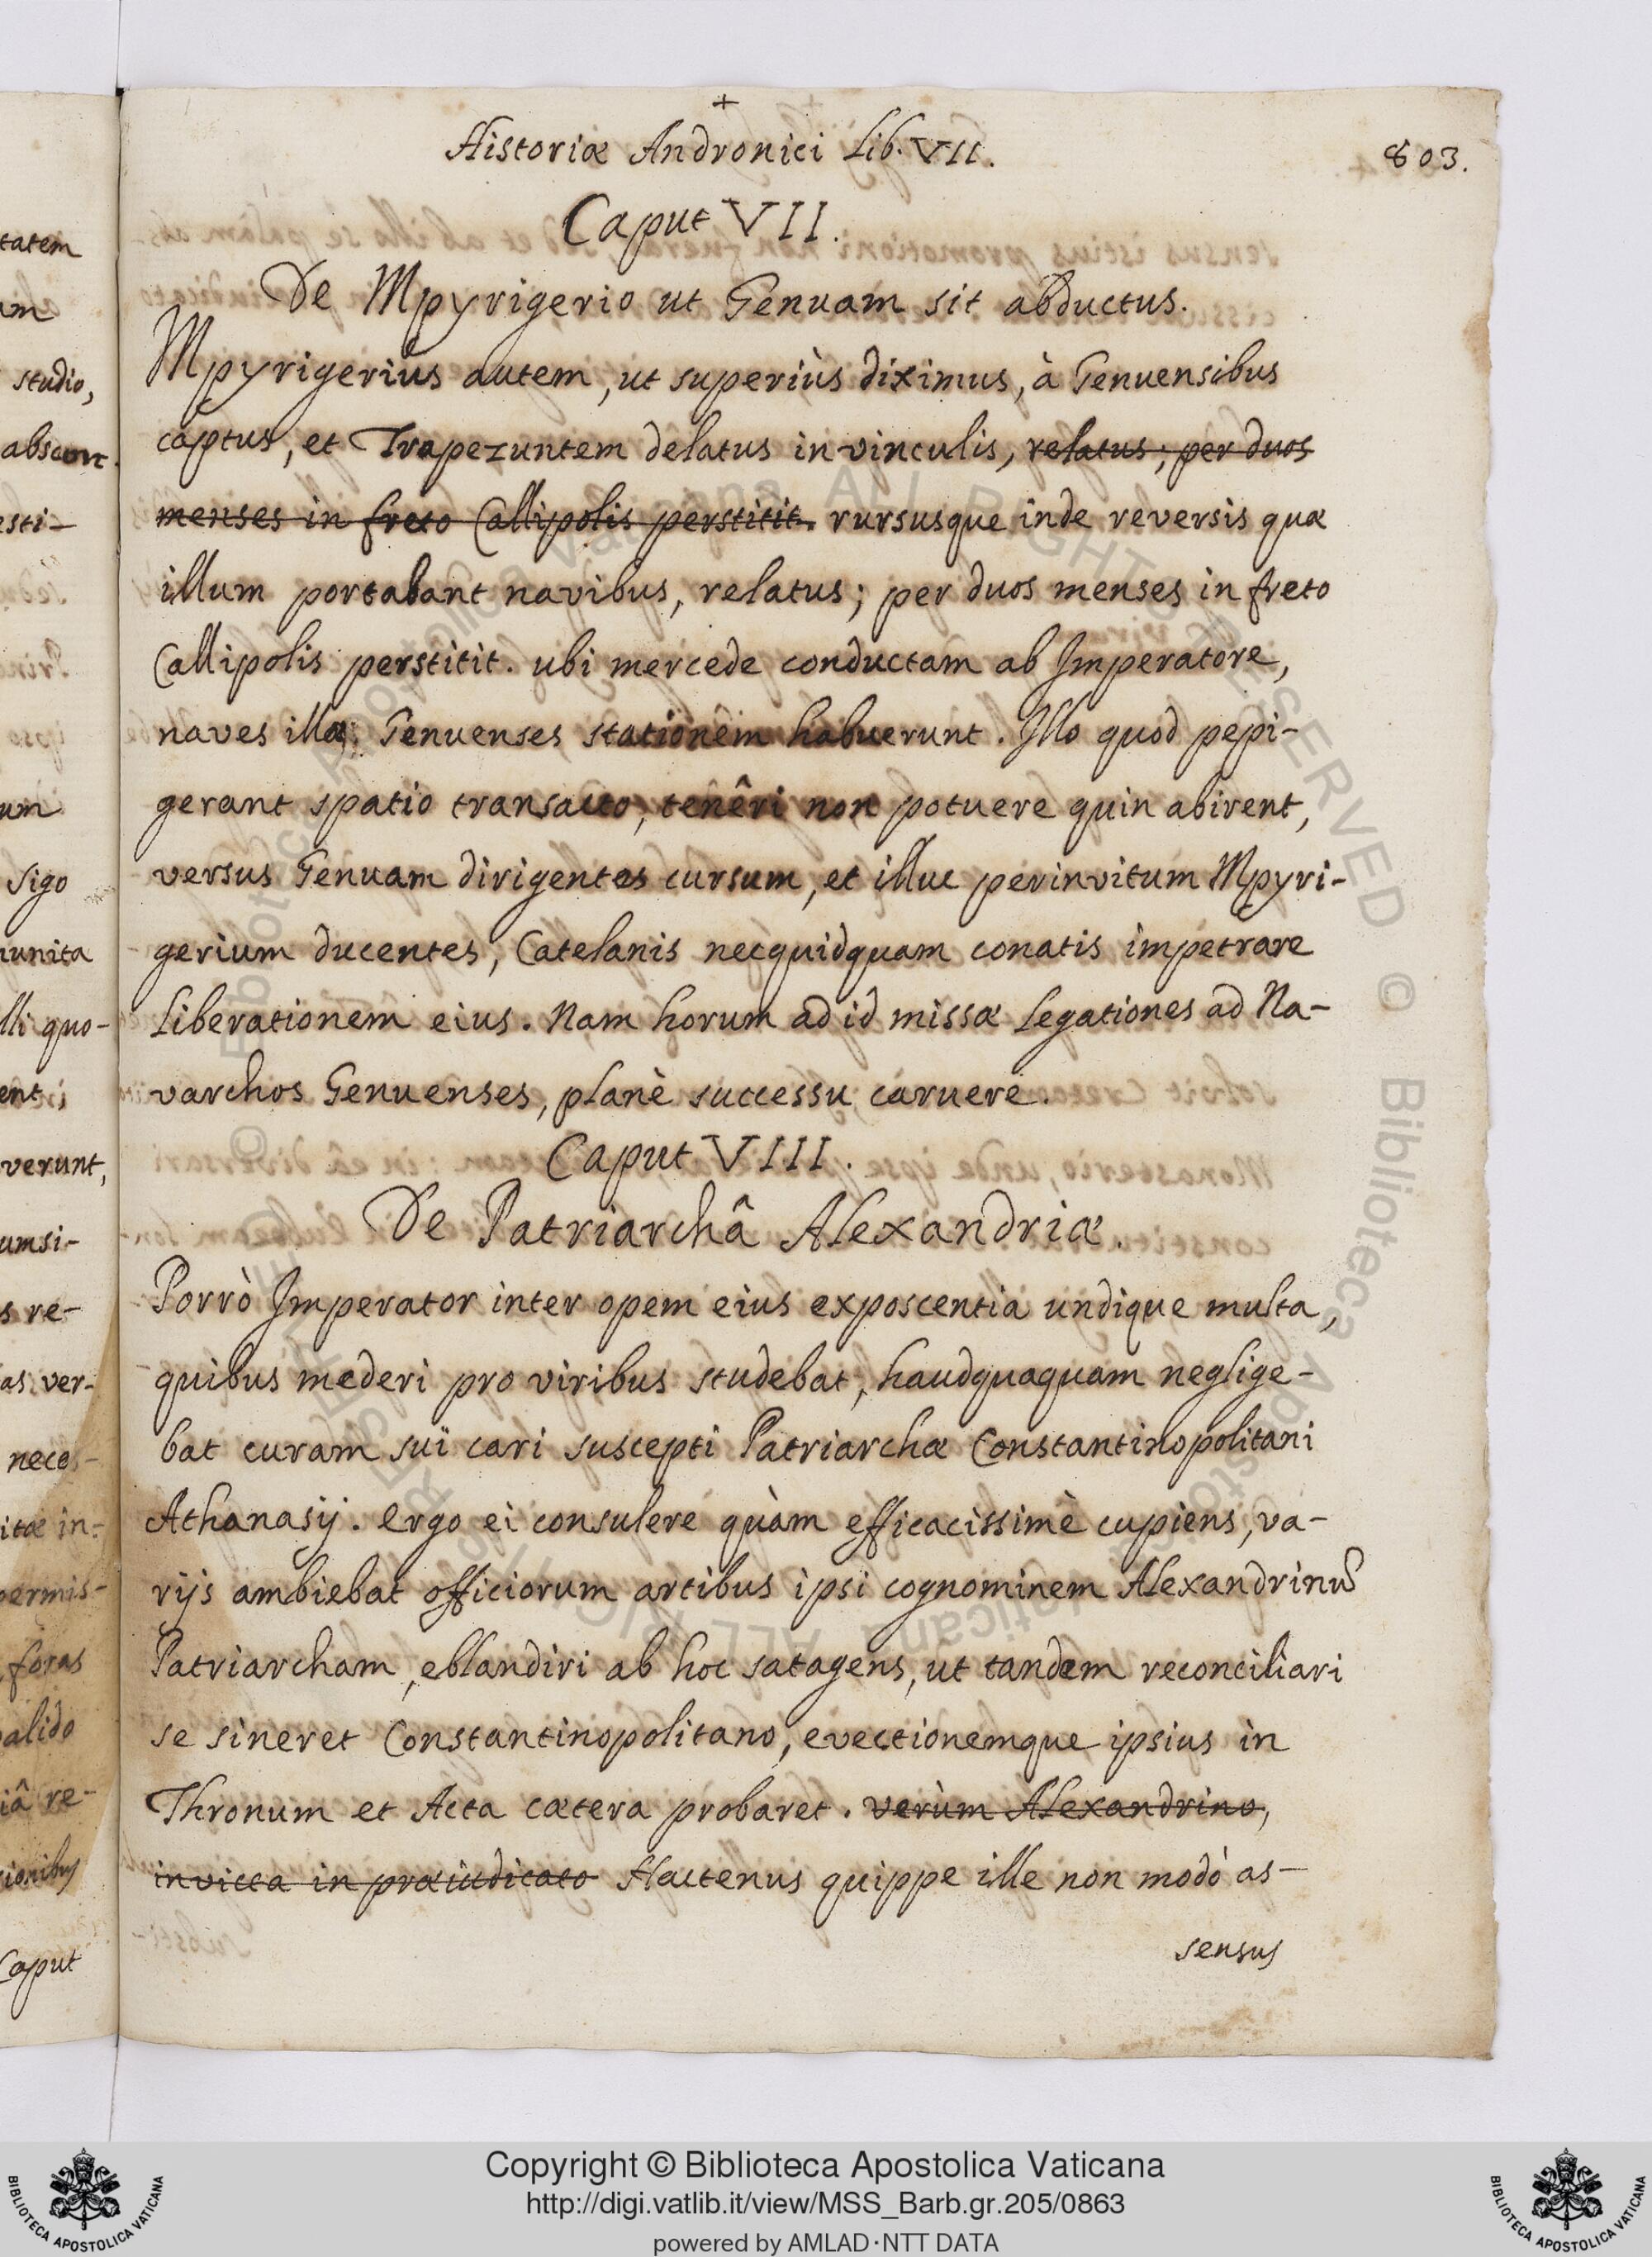 +
Historiæ Andronici Lib. VII.
803.
Caput VII.
De Mpyrigerio ut Genuam sit abductus.
Mpyrigerius autem, ut superiùs diximus, à Genuensibus
captus, et Trapezuntem delatus in vinculis, relatus; per duos
menses in freto Callipolis perstitit. rursusque inde reversis quæ
illum portabant navibus, relatus; per duos menses in freto
Callipolis perstitit. ubi mercede conductam ab Imperatore,
naves illæ Genuenses stationem habuerunt. Illo quod pepi-
gerant spatio transacto, tenêri non potuere quin abirent,
versus Genuam dirigentes cursum, et illuc perinvitum Mpyri-
gerium ducentes, Catelanis necquidquam conatis impetrare
liberationem eius. Nam horum ad id missæ legationes ad Na-
varchos Genuenses, planè successu caruere.
Caput VIII.
De Patriarchâ Alexandriæ.
Porrò Imperator inter opem eius exposcentia undique multa,
quibus mederi pro viribus studebat, haudquaquam neglige-
bat curam suï cari suscepti Patriarchæ Constantinopolitani
Athanasij. Ergo ei consulere quàm efficacissimè cupiens, va-
rijs ambiebat officiorum artibus ipsi cognominem Alexandrinũ
Patriarcham, eblandiri ab hoc satagens, ut tandem reconciliari
se sineret Constantinopolitano, evectionemque ipsius in
Thronum et Acta cætera probaret. verùm Alexandrino,
invicta in præiudicato Hactenus quippe ille non modò as-
sensus
tatem
um
studio,
esti-
um
sigo
munita
lli quo-
ent,
verunt,
umsi-
s re-
as ver-
itæ in-
permis-
foras
valido
iâ re-
sionibus
Caput
Copyright © Biblioteca Apostolica Vaticana
http://digi.vatlib.it/view/MSS_Barb.gr.205/0863
powered by AMLAD·NTT DATA
BIBLIOTECA APOSTOLICA VATICANA
BIBLIOTECA APOSTOLICA VATICANA